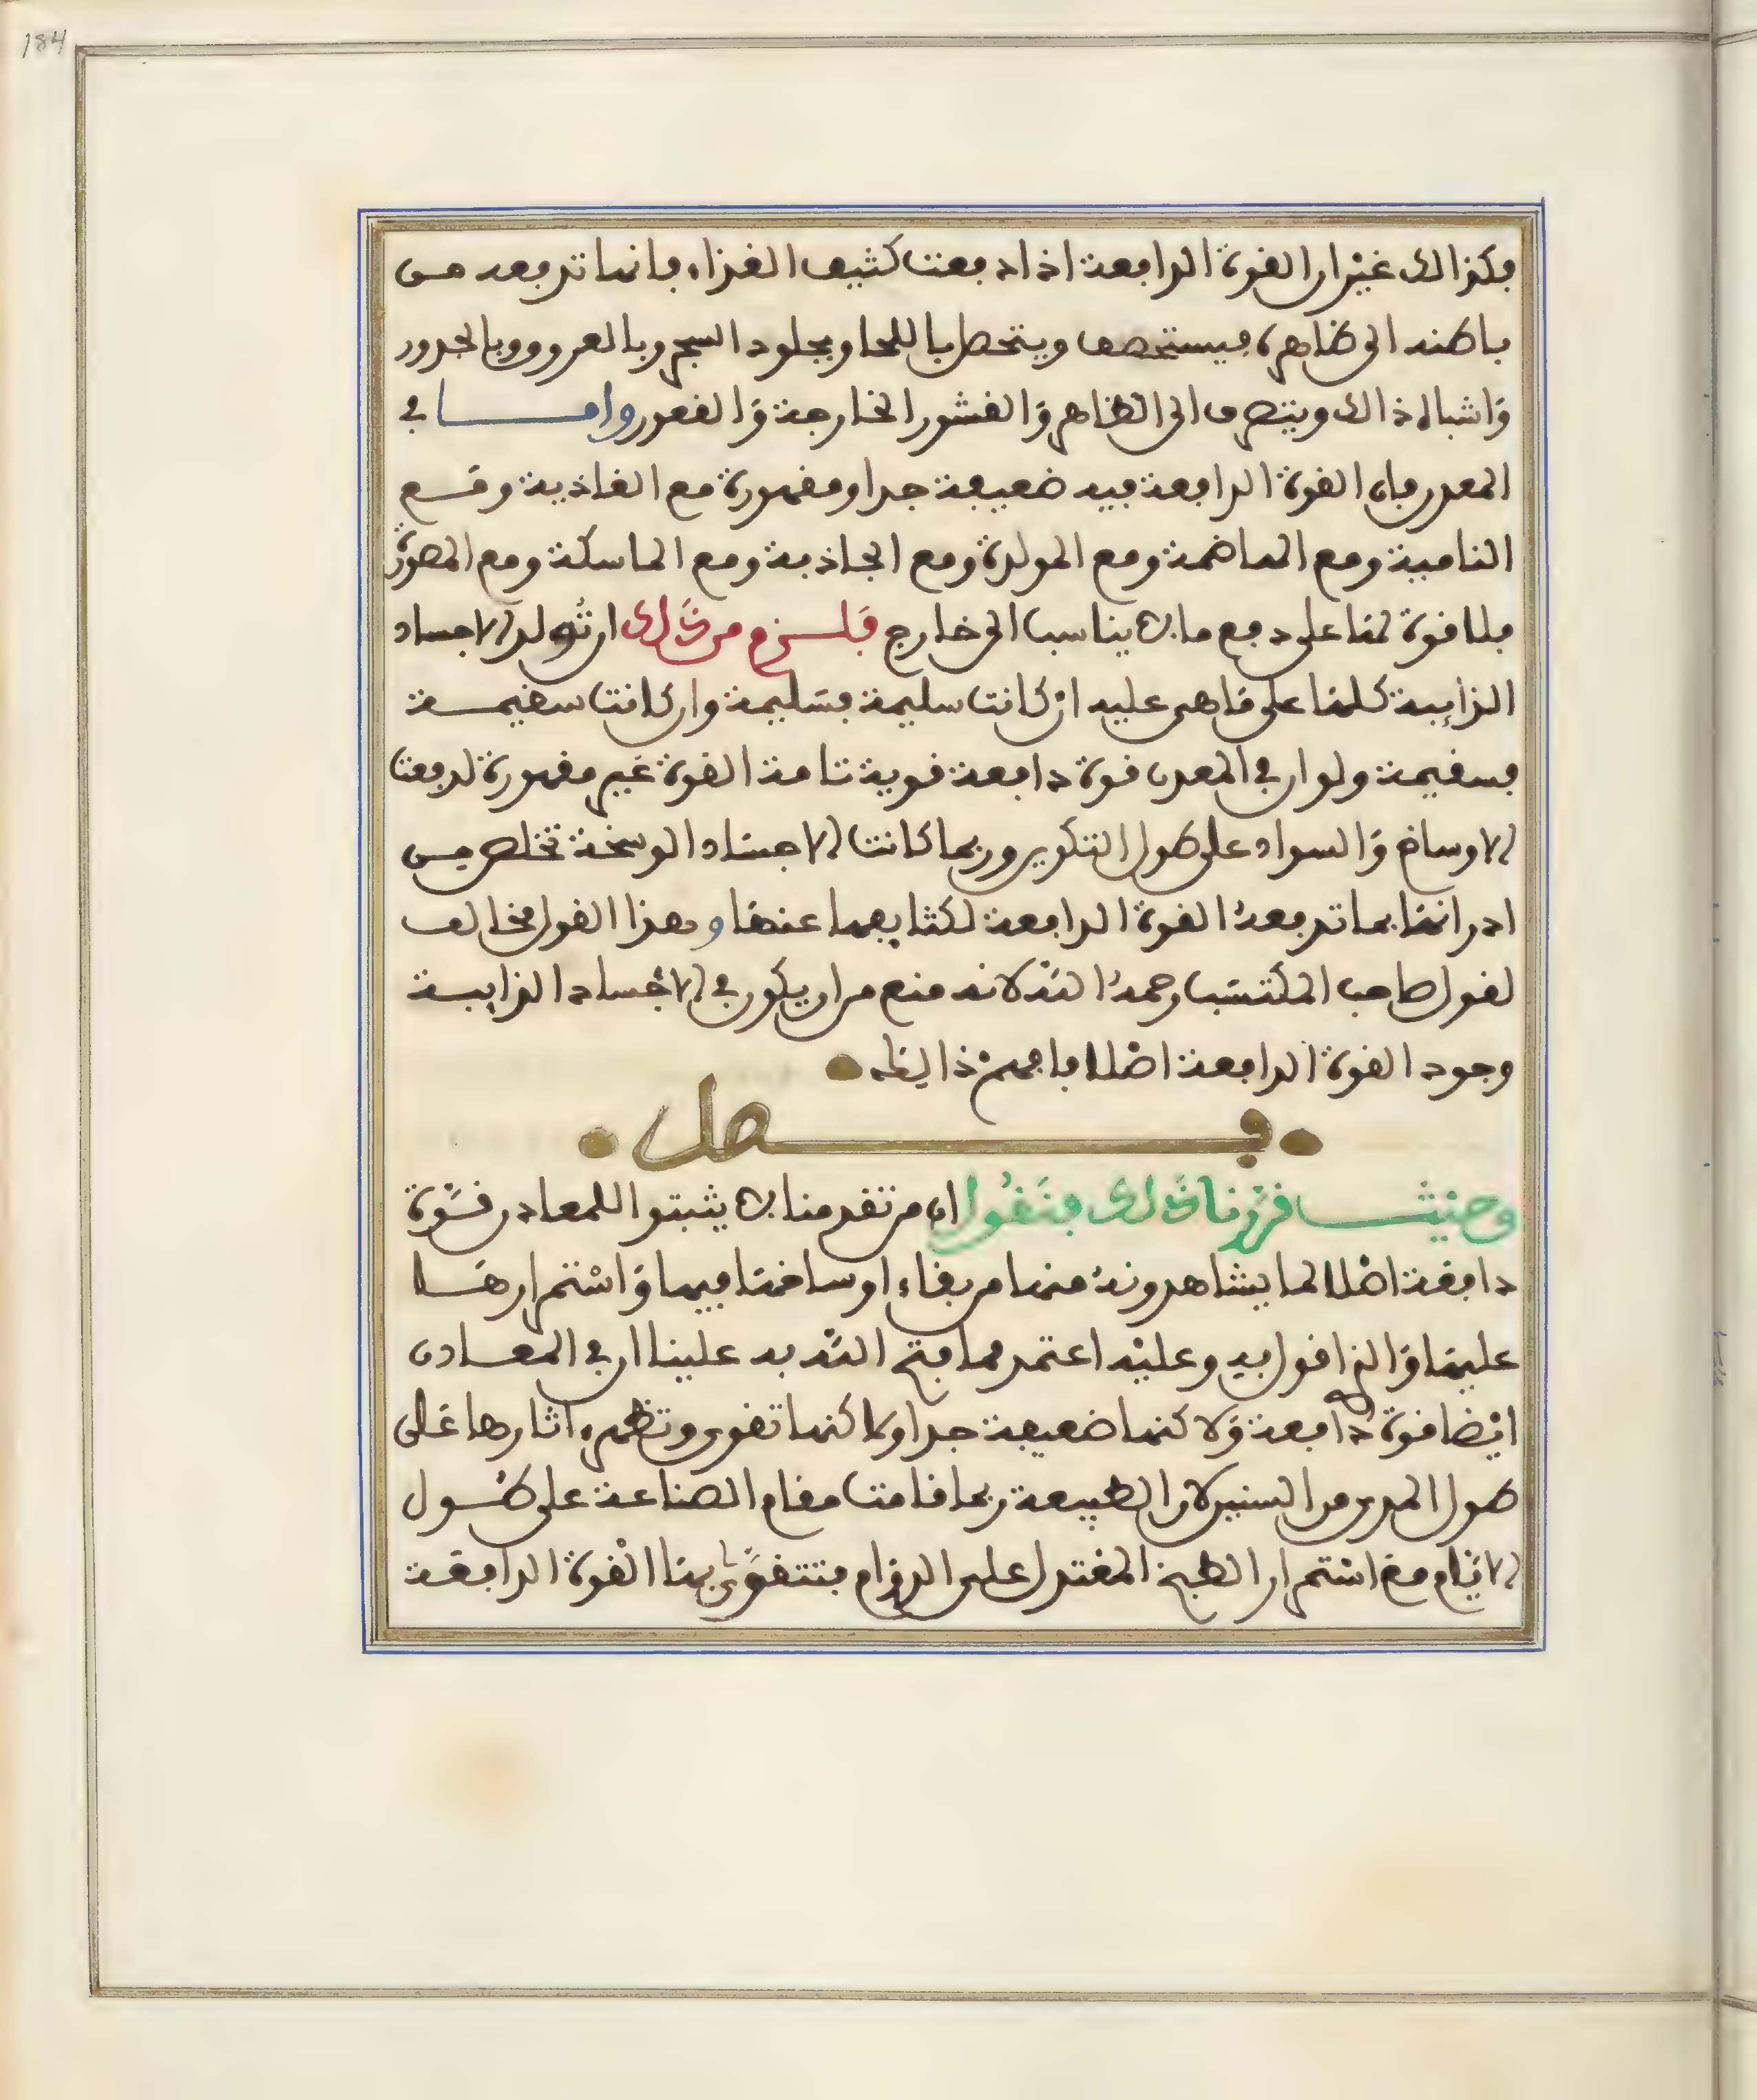 184
فكذالك غير ان القوة الدافعة اذا دفعت كثيف الغذاء فانما تدفعه من
باطنه الى ظاهره فيستحصف ويتحصل باللحا وبجلود الشجر وبالعروق وبالجذور
واشباه ذالك ويتصرف الى الظاهر والقشور الخارجة والقعور واما في
المعدن فان القوة الدافعة فيه ضعيفة جدا ومقهورة مع الغاذية ومع
النامية ومع الهاضمة ومع المولدة ومع الجاذبة ومع الماسكة ومع المصورة
فلا قوة لها على دفع ما لا يناسب الى خارج فلزم من ذلك ان تولد الاجساد
الذايبة كلها على ما هي عليه ان كانت سليمة فسليمة وان كانت سقيمة
فسقيمة ولو ان في المعدن قوة دافعة قوية تامة القوة غير مقهورة لدفعت
الاوساخ والسواد على طول التكوين وربما كانت الاجساد الوسخة تخلص من
ادرانها بما تدفعه القوة الدافعة لكثايفها عنها وهذا القول مخالف
لقول صاحب المكتسب رحمه الله لانه منع من ان يكون في الاجساد الذايبة
وجود القوة الدافعة اصلا فافهم ذالك
فصل
وحيث قررنا ذلك فنقول ان من تقدمنا لا يثبتوا للمعادن قوة
دافعة اصلا لما يشاهدونه منها من بقاء اوساخها فيها واستمرارها
عليها والذي اقول به وعليه اعتمد مما فتح الله به علينا ان في المعادن
ايضا قوة دافعة ولاكنها ضعيفة جدا ولاكنها تقوى وتظهر اثارها على
طول المدى من السنين لان الطبيعة ربما قامت مقام الصناعة على طول
الايام مع استمرار الطبخ المعتدل على الدوام فتتقوى بها القوة الدافعة